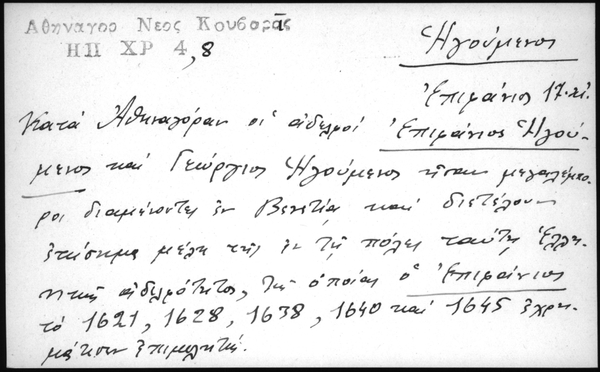 Αθηναγορ Νεος Κουβαρᾶς
ΗΠ ΧΡ 4,8
Ἡγούμενος
Ἐπιφάνιος 17.αἰ.
Κατά Ἀθηναγόραν οἱ ἀδελφοί Ἐπιφάνιος Ἡγού-
μενος καί Γεώργιος Ἡγούμενος ἦσαν μεγαλέμπο-
ροι διαμένοντες ἐν Βενετίᾳ καί διετέλουν
ἐπίσημα μέλη τῆς ἐν τῇ πόλει ταύτῃ Ἑλλη-
νικῆς ἀδελφότητος, τῆς ὁποίας ὁ Ἐπιφάνιος
τό 1621, 1628, 1638, 1640 καί 1645 ἐχρη-
μάτισεν ἐπιμελητής.